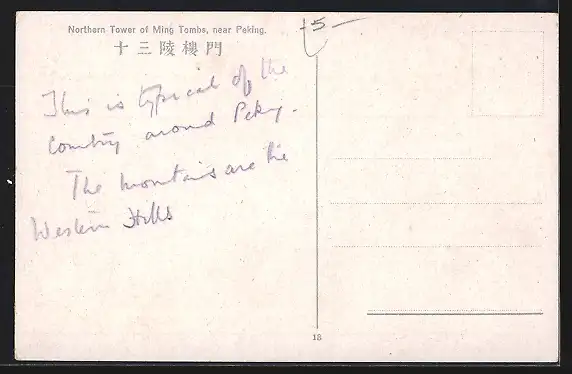 Northern Tower of Ming Tombs, near Peking.
十三陵樓門
-5-
This is typical of the
country around Peking.
The mountains are the
Western Hills
18